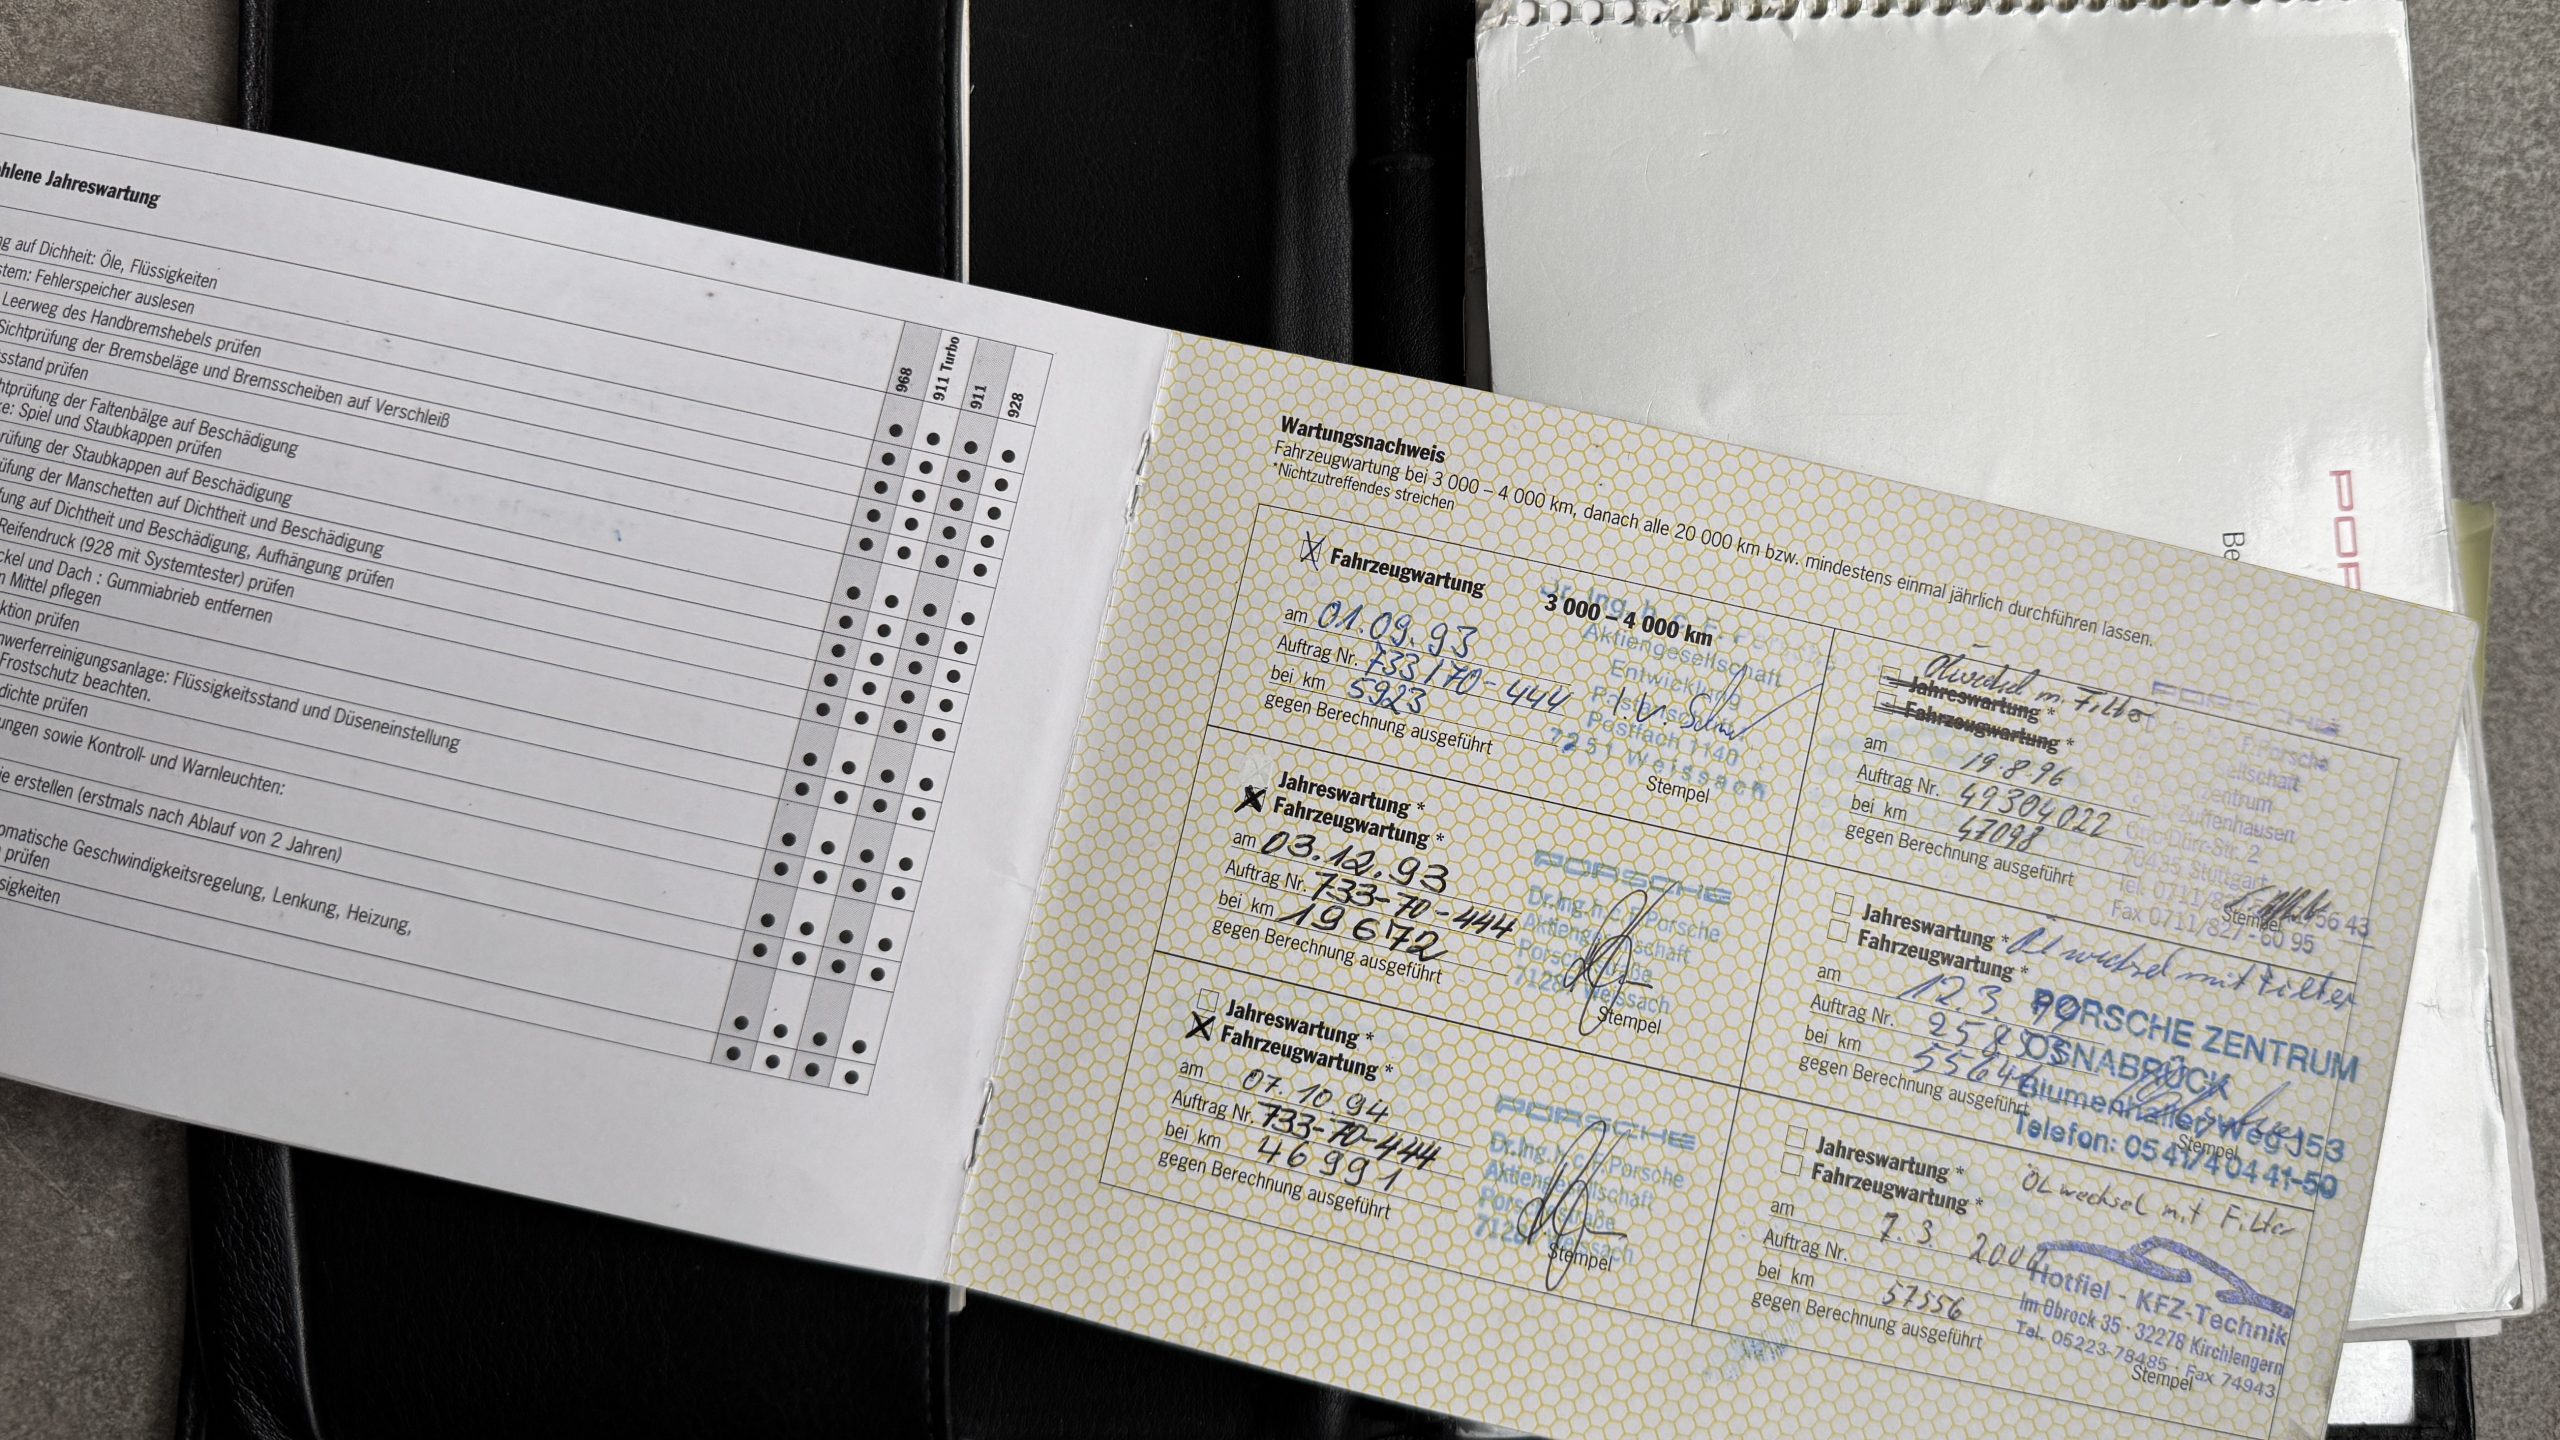 hlene Jahreswartung
g auf Dichheit: Öle, Flüssigkeiten
stem: Fehlerspeicher auslesen
Leerweg des Handbremshebels prüfen
Sichtprüfung der Bremsbeläge und Bremsscheiben auf Verschleiß
sstand prüfen
htprüfung der Faltenbälge auf Beschädigung
ke: Spiel und Staubkappen prüfen
rüfung der Staubkappen auf Beschädigung
üfung der Manschetten auf Dichtheit und Beschädigung
fung auf Dichtheit und Beschädigung, Aufhängung prüfen
Reifendruck (928 mit Systemtester) prüfen
ckel und Dach : Gummiabrieb entfernen
n Mittel pflegen
ktion prüfen
nwerferreinigungsanlage: Flüssigkeitsstand und Düseneinstellung
Frostschutz beachten.
dichte prüfen
ungen sowie Kontroll- und Warnleuchten:
ie erstellen (erstmals nach Ablauf von 2 Jahren)
omatische Geschwindigkeitsregelung, Lenkung, Heizung,
prüfen
sigkeiten
968
911 Turbo
911
928
Wartungsnachweis
Fahrzeugwartung bei 3 000 – 4 000 km, danach alle 20 000 km bzw. mindestens einmal jährlich durchführen lassen.
*Nichtzutreffendes streichen
X Fahrzeugwartung 3 000 – 4 000 km
am 01.09.93
Auftrag Nr. 733170-444
bei km 5923
gegen Berechnung ausgeführt
Dr. Ing. h.c. F. Porsche
Aktiengesellschaft
Entwicklung
Postanschrift
Postfach 1140
7251 Weissach
Stempel
Jahreswartung *
X Fahrzeugwartung *
am 03.12.93
Auftrag Nr. 733-70-444
bei km 19672
gegen Berechnung ausgeführt
PORSCHE
Dr.Ing.h.c.F.Porsche
Aktiengesellschaft
Porschestraße
71287 Weissach
Stempel
Jahreswartung *
X Fahrzeugwartung *
am 07.10.94
Auftrag Nr. 733-70-444
bei km 46991
gegen Berechnung ausgeführt
PORSCHE
Dr.Ing.h.c.F.Porsche
Aktiengesellschaft
Porschestraße
71287 Weissach
Stempel
Ölwechsel m. Filter
Jahreswartung *
Fahrzeugwartung *
am 19.8.96
Auftrag Nr. 49304022
bei km 47098
gegen Berechnung ausgeführt
PORSCHE
F.Porsche
Zuffenhausen
Str. 2
70435 Stuttgart
Stempel
Jahreswartung *
Fahrzeugwartung *
Ölwechsel mit Filter
am 12.3
Auftrag Nr.
bei km
gegen Berechnung ausgeführt
PORSCHE ZENTRUM
OSNABRÜCK
Blumenhaller Weg 153
Telefon: 0541/40441-50
Stempel
Jahreswartung *
Fahrzeugwartung *
ÖLwechsel mit Filter
am 7.3.
Auftrag Nr.
bei km 57556
gegen Berechnung ausgeführt
Hotfiel - KFZ-Technik
Im Obrock 35 · 32278 Kirchlengern
Tel. 05223-78485 · Fax 74943
Stempel
POR
Be